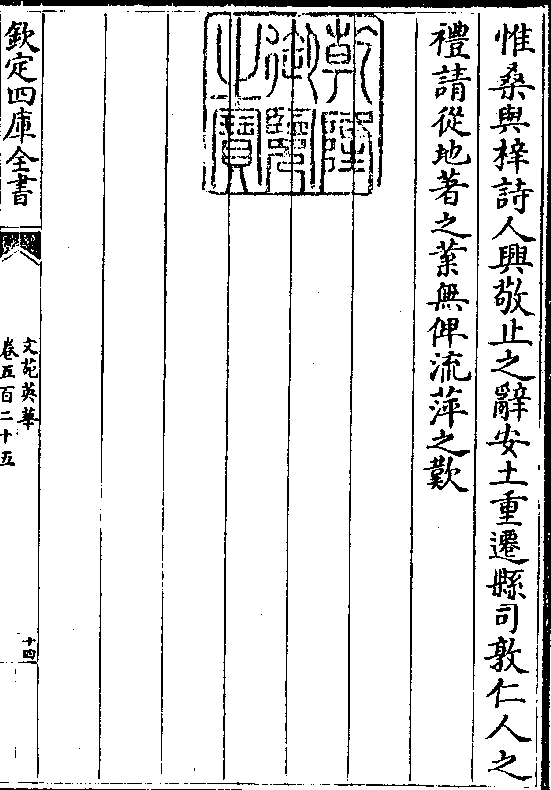 惟桑與梓詩人興敬止之辭安土重遷縣司敦仁人之
禮請從地著之業無俾流萍之歎
乾隆御覽之寶
欽定四庫全書
文苑英華
卷五百二十五
十四